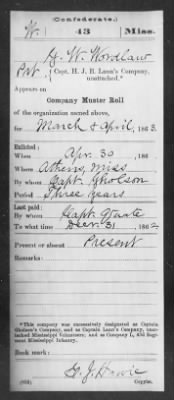 (Confederate.)
W. 43 Miss.
G. W. Wordlaw
Pvt, Capt. H. J. B. Lann's Company, unattached.*
Appears on
Company Muster Roll
of the organization named above,
for March & April, 1863.
Enlisted:
When Apr. 30, 186
Where Athens, Miss
By whom Capt. Gholson
Period Three years
Last paid:
By whom Capt.
To what time Dec. 31, 1862
Present or absent Present
Remarks:
*This company was successively designated as Captain
Gholson's Company, and as Captain Lann's Company, unattached
Mississippi Volunteers; and as Company I, 43d Regiment
Mississippi Infantry.
Book mark:
Copyist.